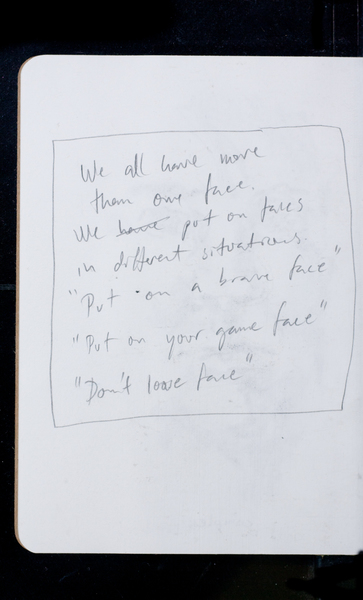 We all have more
than one face.
We have put on faces
in different situations.
"Put on a brave face"
"Put on your game face"
"Don't loose face"